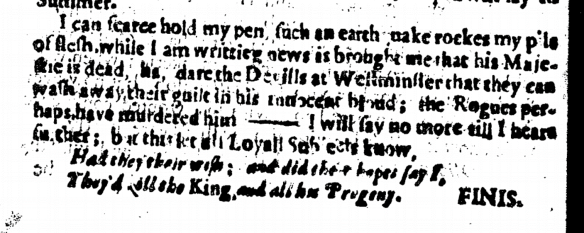 Summer.
I can scarce hold my pen, such an earth quake rockes my pile
of flesh, while I am writtieg news is brought me that his Maje-
stie is dead, ha, dare the Devills at Westminster that they can
wash away their guilt in his innocent blood; the Rogues per-
haps, have murdered him —— I will say no more till I heare
further; but this let all Loyall Subjects know,
Had they their wish; and did their hopes say I,
They'd kill the King, and all his Progeny.
FINIS.